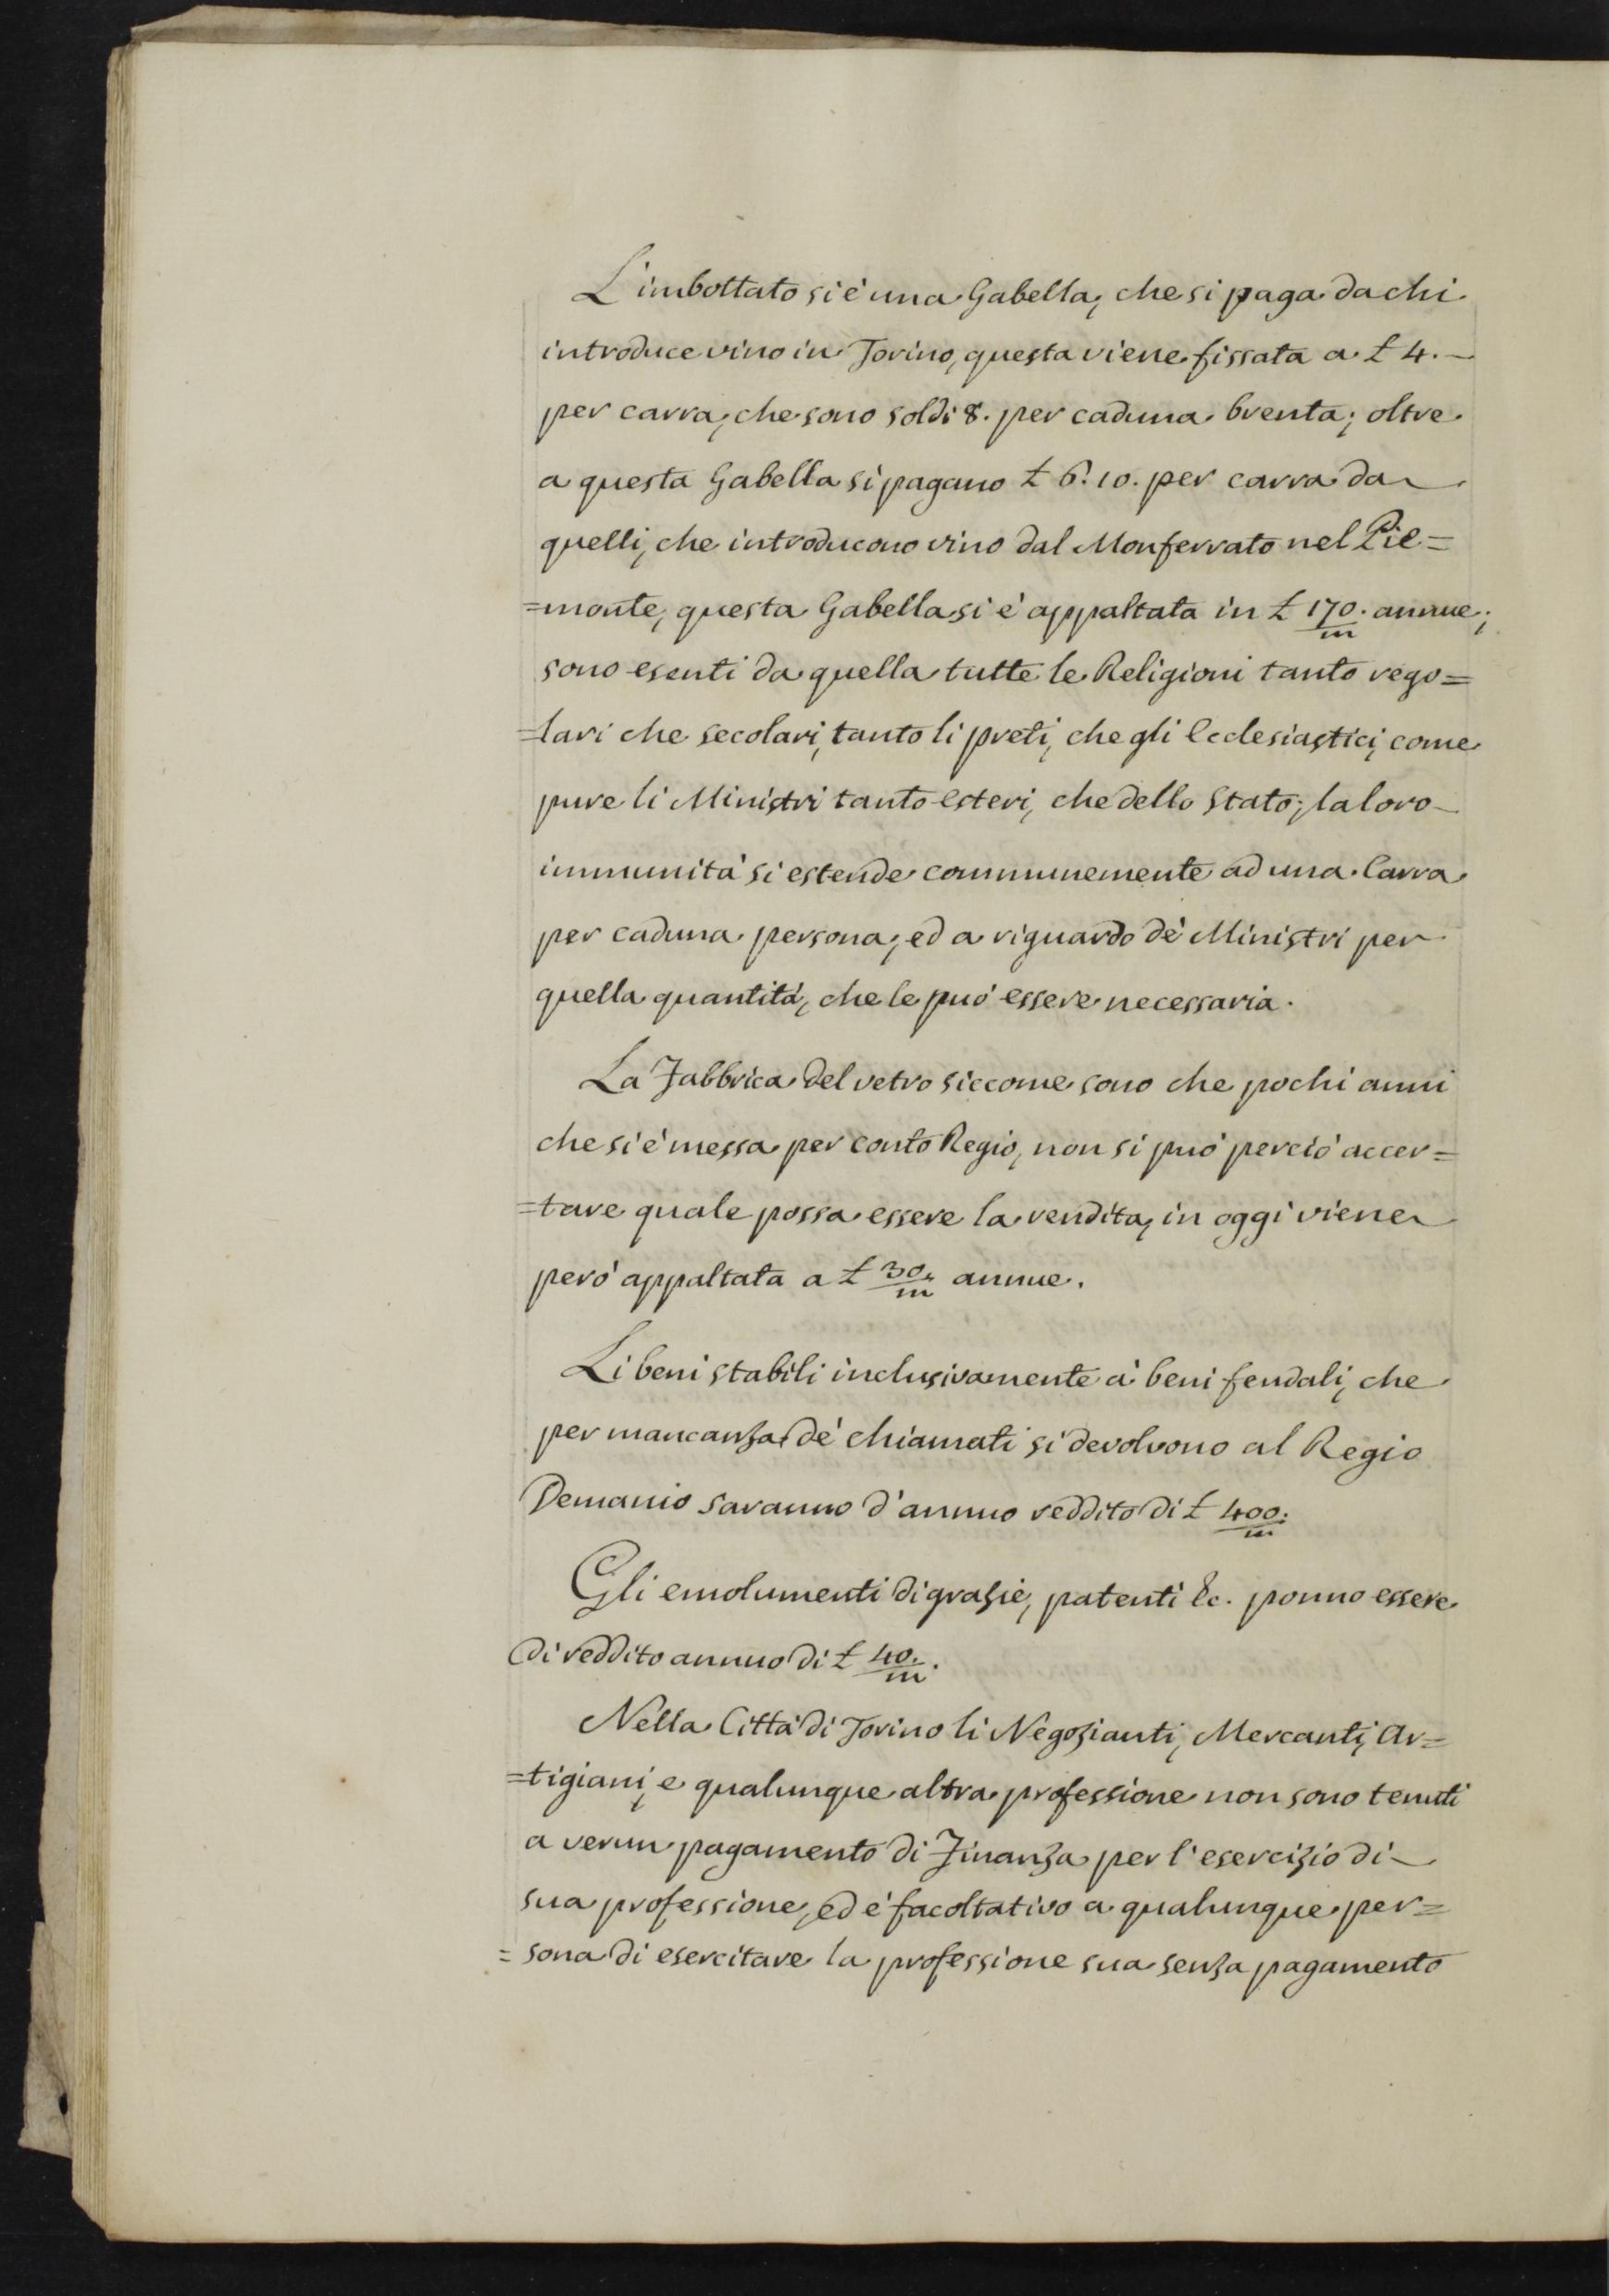 L'imbottato si è una Gabella, che si paga da chi
introduce vino in Torino, questa viene fissata a £ 4. —
per carra, che sono soldi 8. per caduna brenta; oltre
a questa Gabella si pagano £ 6. 10. per carra da
quelli, che introducono vino dal Monferrato nel Pie=
=monte, questa Gabella si è appaltata in £ 170/m. annue;
sono esenti da quella tutte le Religioni tanto rego=
=lari che secolari, tanto li preti, che gli Ecclesiastici, come
pure li Ministri tanto esteri, che dello Stato; la loro
immunità si estende communemente ad una Carra
per caduna persona; ed a riguardo de' Ministri per
quella quantità, che le può essere necessaria.
La Fabbrica del vetro siccome sono che pochi anni
che si è messa per conto Regio, non si può perciò accer=
=tare quale possa essere la rendita, in oggi viene
però appaltata a £ 30/m. annue.
Li beni stabili inclusivamente a' beni feudali, che
per mancanza de' chiamati si devolvono al Regio
Demanio saranno d'annuo reddito di £ 400/m.
Gli emolumenti di grazie, patenti &c. ponno essere
di reddito annuo di £ 40/m.
Nella Città di Torino li Negozianti, Mercanti, Ar=
=tigiani, e qualunque altra professione non sono tenuti
a verun pagamento di Finanza per l'esercizio di
sua professione, ed è facoltativo a qualunque per=
=sona di esercitare la professione sua senza pagamento